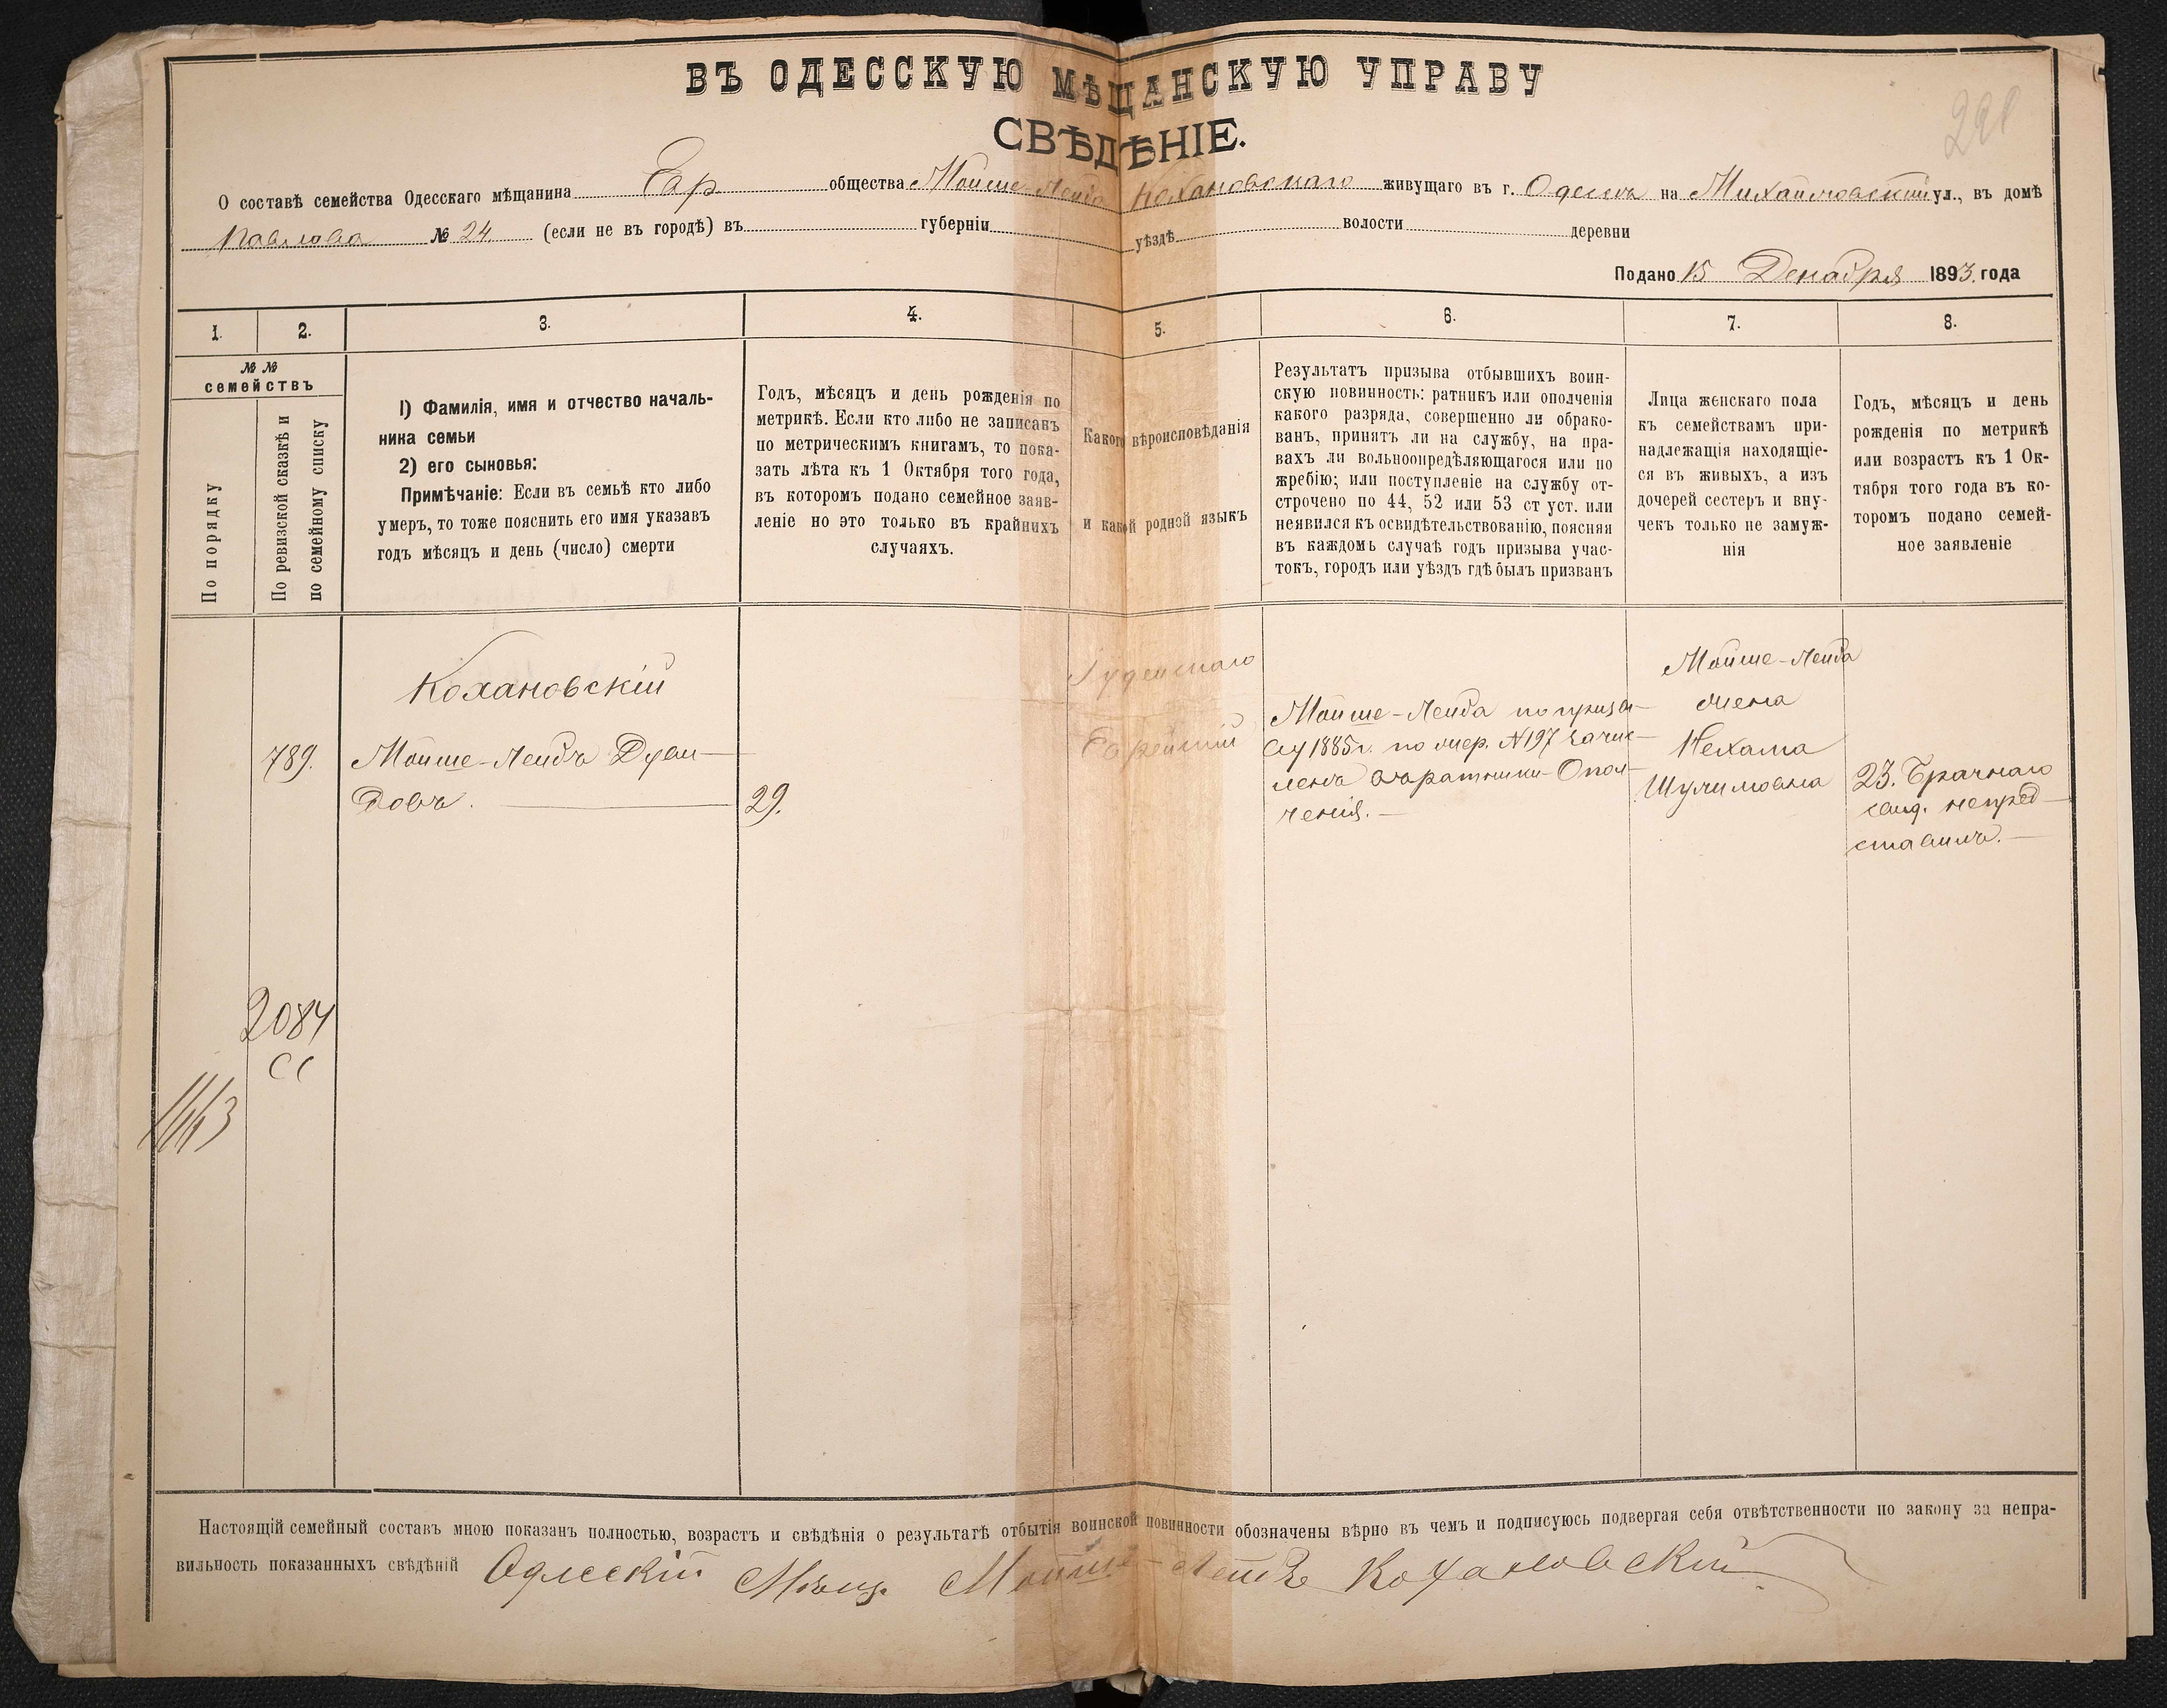 ВЪ ОДЕССКУЮ МѢЩАНСКУЮ УПРАВУ
СВѢДѢНІЕ.
О составѣ семейства Одесскаго мѣщанина Евр. общества Мойше-Лейба Кохановскаго живущаго въ г. Одессѣ на Михайловской ул., въ домѣ
Павлова № 24 (если не въ городѣ) въ губерніи уѣздѣ волости деревни
Подано 15 Декабря 1893. года
1. 2. 3. 4. 5. 6. 7. 8.
№ №
семействъ
По порядку
По ревизской сказкѣ и
по семейному списку
1) Фамилія, имя и отчество началь-
ника семьи
2) его сыновья:
Примѣчаніе: Если въ семьѣ кто либо
умеръ, то тоже пояснить его имя указавъ
годъ мѣсяцъ и день (число) смерти
Годъ, мѣсяцъ и день рожденія по
метрикѣ. Если кто либо не записанъ
по метрическимъ книгамъ, то пока-
зать лѣта къ 1 Октября того года,
въ которомъ подано семейное заяв-
леніе но это только въ крайнихъ
случаяхъ.
Какого вѣроисповѣданія
и какой родной языкъ
Результатъ призыва отбывшихъ воин-
скую повинность: ратникъ или ополченія
какого разряда, совершенно ли обрако-
ванъ, принятъ ли на службу, на пра-
вахъ ли вольноопредѣляющагося или по
жребію; или поступленіе на службу от-
строчено по 44, 52 или 53 ст уст. или
неявился къ освидѣтельствованію, поясняя
въ каждомъ случаѣ годъ призыва учас-
токъ, городъ или уѣздъ гдѣ былъ призванъ
Лица женскаго пола
къ семействамъ при-
надлежащія находящіе-
ся въ живыхъ, а изъ
дочерей сестеръ и вну-
чекъ только не замуж-
нія
Годъ, мѣсяцъ и день
рожденія по метрикѣ
или возрастъ къ 1 Ок-
тября того года въ ко-
торомъ подано семей-
ное заявленіе
Кохановскій
789.
Мойше-Лейбъ Дуви-
довъ.
29.
Іудейскаго
Еврейскій
Мойше-Лейба по призы-
ву 1885 г. по жер. № 197 зачис-
ленъ въ ратники Опол-
ченія.
Мойше-Лейба
жена
Нехама
Шулимовна
23. Брачнаго
свид. непред-
ставилъ.
2084
СС
1663
Настоящій семейный составъ мною показанъ полностью, возрастъ и свѣдѣнія о результатѣ отбытія воинской повинности обозначены вѣрно въ чемъ и подписуюсь подвергая себя отвѣтственности по закону за непра-
вильность показанныхъ свѣдѣній Одесскій Мѣщ. Мойше-Лейбъ Кохановскій